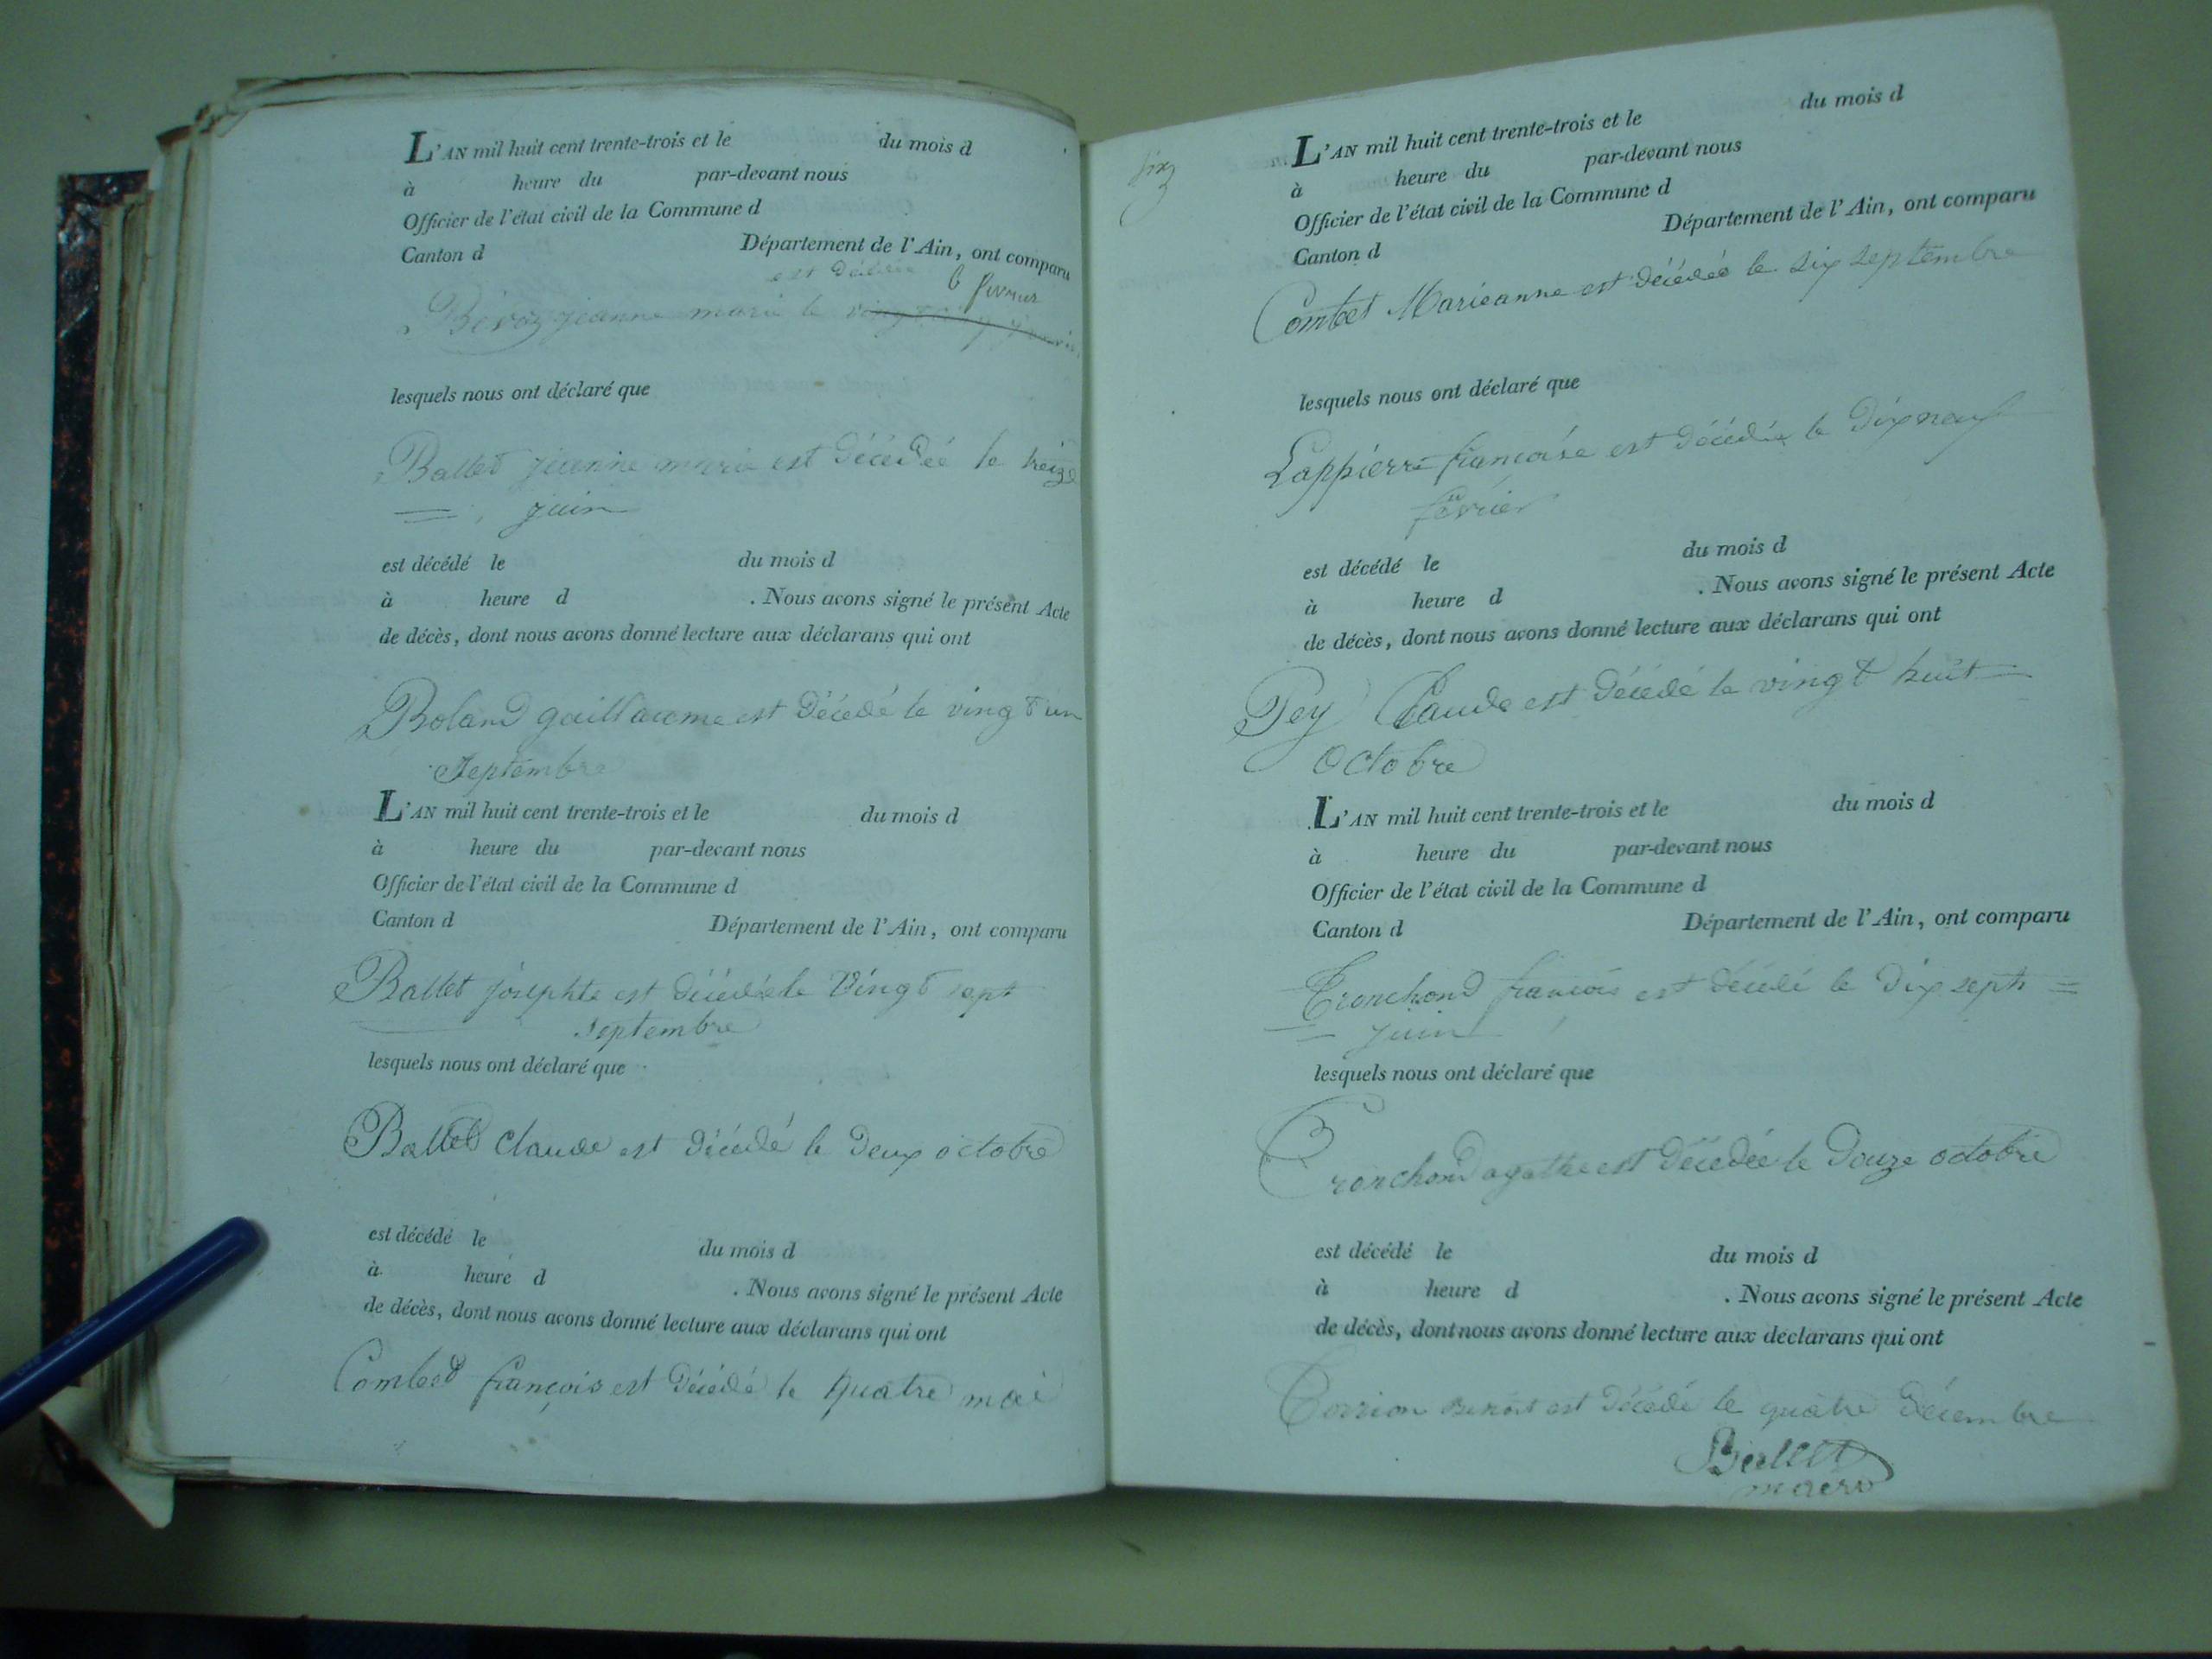 L'AN mil huit cent trente-trois et le du mois d
à heure du par-devant nous
Officier de l'état civil de la Commune d
Canton d Département de l'Ain, ont comparu
est décédée 6 février
jeanne marie le
lesquels nous ont déclaré que
Ballet jeanne marie est décédée le treize
juin
est décédé le du mois d
à heure d . Nous avons signé le présent Acte
de décès, dont nous avons donné lecture aux déclarans qui ont
Roland guillaume est décédé le vingt un
Septembre
L'AN mil huit cent trente-trois et le du mois d
à heure du par-devant nous
Officier de l'état civil de la Commune d
Canton d Département de l'Ain, ont comparu
Ballet josephte est décédée le Vingt sept
septembre
lesquels nous ont déclaré que
Ballet Claude est décédé le deux octobre
est décédé le du mois d
à heure d . Nous avons signé le présent Acte
de décès, dont nous avons donné lecture aux déclarans qui ont
Combet françois est décédé le quatre mai
six
L'AN mil huit cent trente-trois et le du mois d
à heure du par-devant nous
Officier de l'état civil de la Commune d
Canton d Département de l'Ain, ont comparu
Combet Marieanne est décédée le six septembre
lesquels nous ont déclaré que
Lappierre françoise est décédée le dix neuf
février
est décédé le du mois d
à heure d . Nous avons signé le présent Acte
de décès, dont nous avons donné lecture aux déclarans qui ont
Pey Claude est décédé le vingt huit
Octobre
L'AN mil huit cent trente-trois et le du mois d
à heure du par-devant nous
Officier de l'état civil de la Commune d
Canton d Département de l'Ain, ont comparu
Tronchond françois est décédé le dix septe
juin
lesquels nous ont déclaré que
Tronchond agathe est décédée le douze octobre
est décédé le du mois d
à heure d . Nous avons signé le présent Acte
de décès, dont nous avons donné lecture aux déclarans qui ont
benoit est décédé le quatre décembre
Ballet
maire